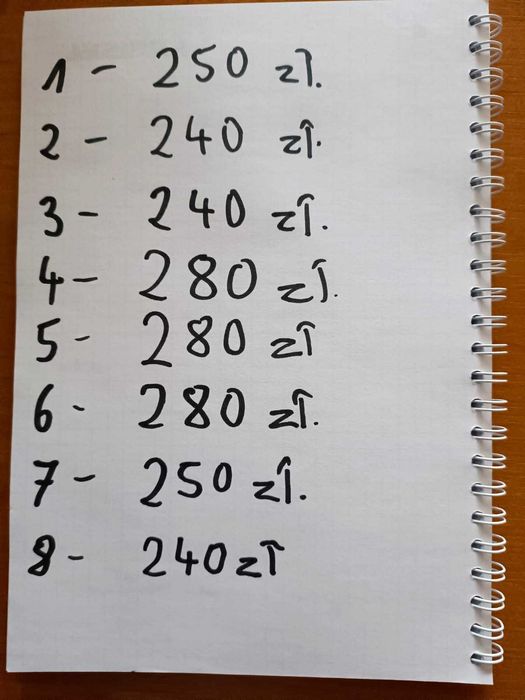 1 - 250 zł.
2 - 240 zł.
3 - 240 zł.
4 - 280 zł.
5 - 280 zł
6 - 280 zł.
7 - 250 zł.
8 - 240 zł